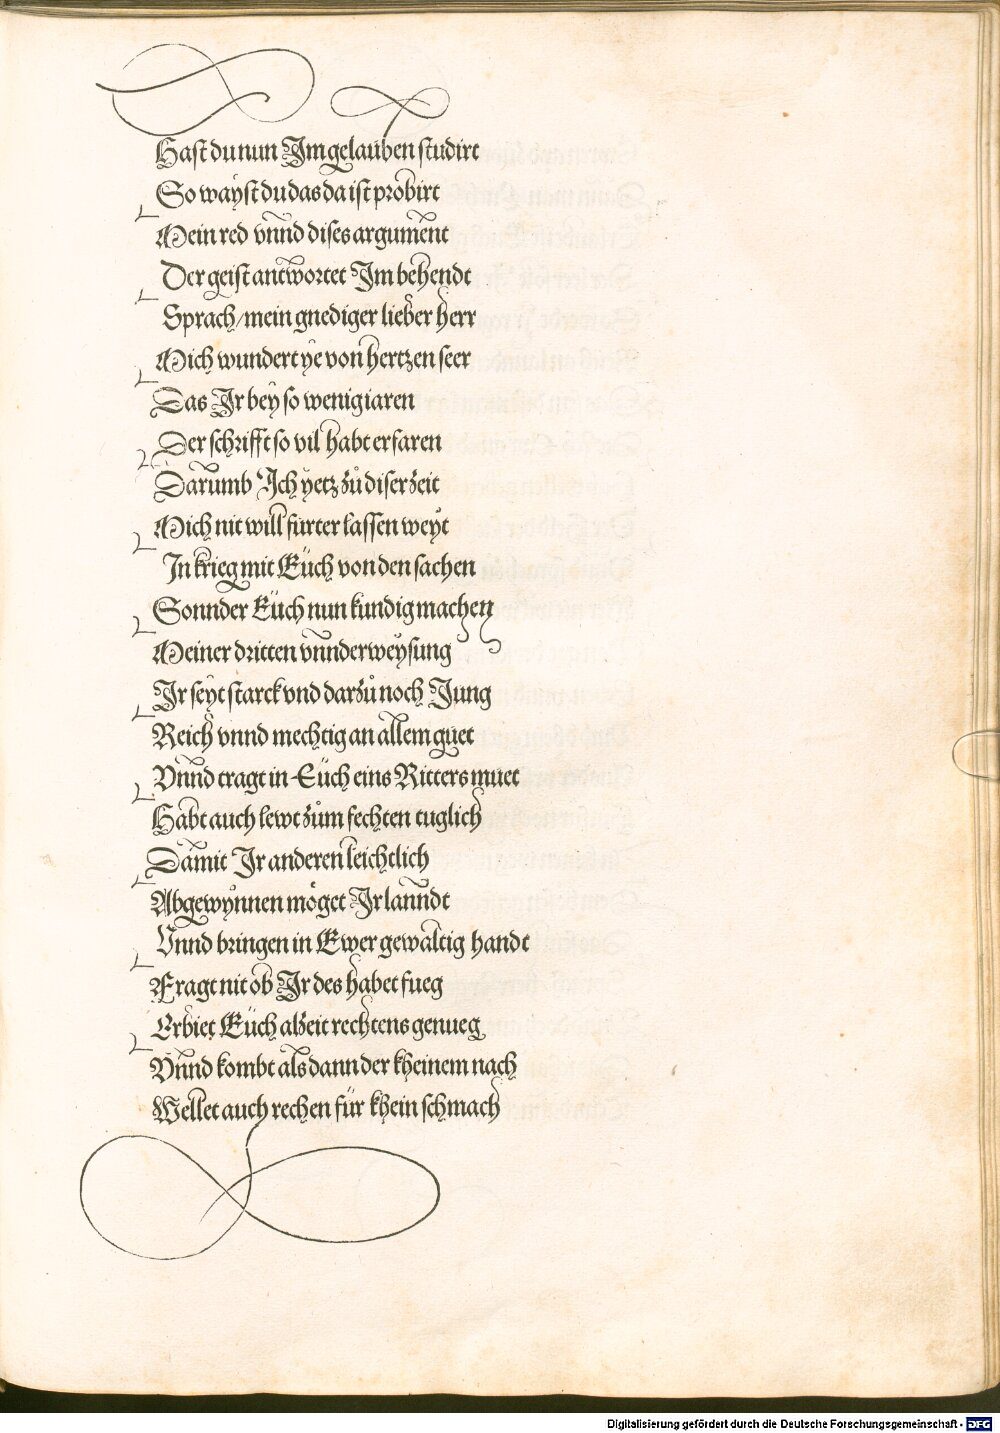 Hast du nun Im gelauben studirt
So wayst du das da ist probirt
Mein red vnnd dises argument
Der geist antwortet Im behendt
Sprach/mein gnediger lieber herr
Mich wundert ye von hertzen seer
Das Ir bey so wenig iaren
Der schrifft so vil habt erfaren
Darumb Ich yetz zů diser zeit
Mich nit will fürter lassen weyt
In krieg mit Eüch von den sachen
Sonnder Eüch nun kündig machen
Meiner dritten vnnderweysung
Ir seyt starck vnd darzů noch Jung
Reich vnnd mechtig an allem guet
Vnnd tragt in Eüch eins Ritters muet
Habt auch lewt zům fechten tuglich
Damit Ir anderen leichtlich
Abgewynnen möget Ir lanndt
Vnnd bringen in Ewer gewaltig handt
Fragt nit ob Ir des habet fueg
Erbiet Eüch alzeit rechtens genueg
Vnnd kombt als dann der kheinem nach
Wellet auch rechen für khein schmach
Digitalisierung gefördert durch die Deutsche Forschungsgemeinschaft - DFG